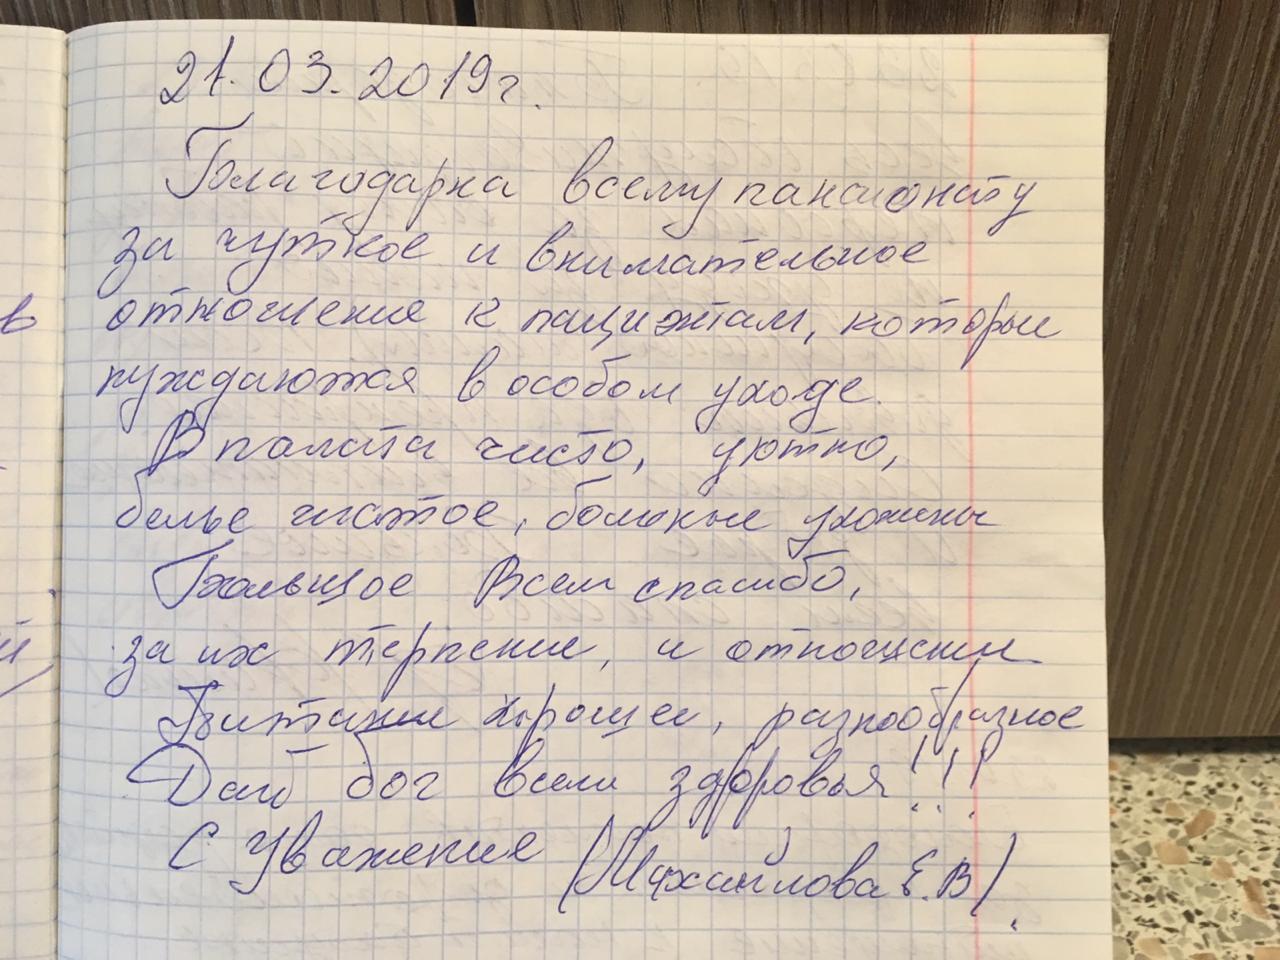 21.03.2019г.
Благодарна всему пансионату
за чуткое и внимательное
отношения к пациэнтам, которые
нуждаются в особом уходе.
В палата чисто, уютно,
белье чистое, больные ухожены
Большое Всем спасибо,
за их терпение, и отношении
Питание хорошее, разнообразное
Дай бог всем здоровья!!!
С Уважение (Михайлова Е.В).
в
й